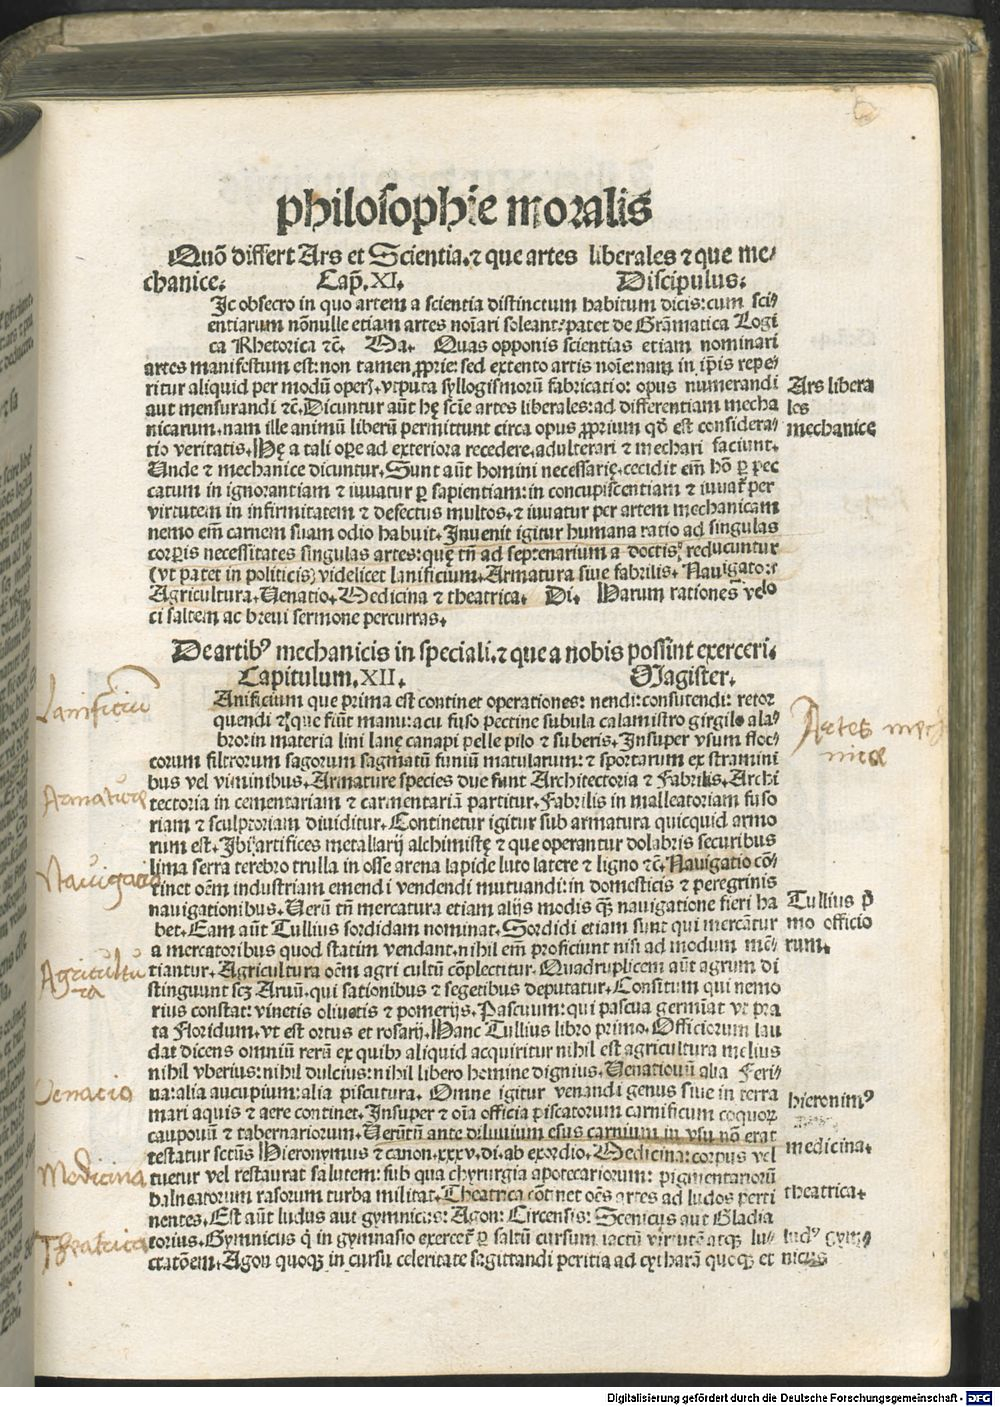 philosophie moralis
Quõ differt Ars et Scientia.⁊ que artes liberales ⁊ que me⸗
chanice. Cap̃. XI. Discipulus.
Ic obsecro in quo artem a scientia distinctum habitum dicis: cum sci⸗
entiarum nõnulle etiam artes noĩari soleant? patet de Grãmatica Logi
ca Rhetorica ⁊c̃. Ma. Quas opponis scientias etiam nominari
artes manifestum est: non tamen ꝓprie: sed extento artis noĩe: nam in ip̃is repe⸗
ritur aliquid per modũ operꝭ. vtputa syllogismorũ fabricatio: opus numerandi
aut mensurandi ⁊c̃. Dicuntur aũt hę scĩe artes liberales: ad differentiam mecha
nicarum. nam ille animũ liberũ permittunt circa opus ꝓprium qd̃ est considera⸗
tio veritatis. Hę a tali oꝑe ad exteriora recedere. adulterari ⁊ mechari faciunt.
Unde ⁊ mechanice dicuntur. Sunt aũt homini necessarię. cecidit em̃ hõ ꝑ pec
catum in ignorantiam ⁊ iuuatur ꝑ sapientiam: in concupiscentiam ⁊ iuuat̃ per
virtutem in infirmitatem ⁊ defectus multos. ⁊ iuuatur per artem mechanicam
nemo em̃ carnem suam odio habuit. Inuenit igitur humana ratio ad singulas
corꝑis necessitates singulas artes: quę tñ ad septenarium a doctis reducuntur
(vt patet in politicis) videlicet lanificium. Armatura siue fabrilis. Nauigatoꝛ
Agricultura. Uenatio. Medicina ⁊ theatrica. Di. Harum rationes velo
ci saltem ac breui sermone percurras.
De artibꝰ mechanicis in speciali. ⁊ que a nobis possint exerceri.
Capitulum. XII. Magister.
Anificium que prima est continet operationes: nendi: consutendi: retor
quendi ⁊ que fiũt manu: acu fuso pectine subula calamistro girgilo ala⸗
bro: in materia lini lanę canapi pelle pilo ⁊ suberis. Insuper vsum floc⸗
corum filtrorum sagorum sagmatũ funiũ matularum: ⁊ sportarum ex stramini
bus vel viminibus. Armature species due sunt Architectoria ⁊ Fabrilis. Archi
tectoria in cementariam ⁊ carmentariã partitur. Fabrilis in malleatoriam fuso
riam ⁊ sculptoriam diuiditur. Continetur igitur sub armatura quicquid armo
rum est. Ibi artifices metallarij alchimistę ⁊ que operantur dolabris securibus
lima serra terebro trulla in osse arena lapide luto latere ⁊ ligno ⁊c̃. Nauigatio cõ⸗
tinet oẽm industriam emendi vendendi mutuandi: in domesticis ⁊ peregrinis
nauigationibus. Uerũ tñ mercatura etiam alijs modis q̃ nauigatione fieri ha
bet. Eam aũt Tullius sordidam nominat. Sordidi etiam sunt qui mercãtur
a mercatoribus quod statim vendant. nihil em̃ proficiunt nisi ad modum mẽ⸗
tiantur. Agricultura oẽm agri cultũ cõplectitur. Quadruplicem aũt agrum di
stinguunt scꝫ Aruũ. qui sationibus ⁊ segetibus deputatur. Consitum qui nemo
rius constat: vinetis oliuetis ⁊ pomerijs. Pascuum: qui pascua germiãt vt pra
ta Floridum. vt est ortus et rosarij. Hanc Tullius libro primo. Officiorum lau
dat dicens omniũ rerũ ex quibꝰ aliquid acquiritur nihil est agricultura melius
nihil vberius: nihil dulcius: nihil libero homine dignius. Uenationũ alia Feri⸗
na: alia aucupium: alia piscatura. Omne igitur venandi genus siue in terra
mari aquis ⁊ aere continet. Insuper ⁊ oĩa officia piscatorum carnificum coquoꝝ
cauponũ ⁊ tabernariorum. Uerũtñ ante diluuium esus carnium in vsu nõ erat
testatur sctũs Hieronymus ⁊ canon. xxxv. di. ab exordio. Medicina: corpus vel
tuetur vel restaurat salutem: sub qua chyrurgia apotecariorum: pigmentariorũ
balneatorum rasorum turba militat. Theatrica cõtinet oẽs artes ad ludos perti
nentes. Est aũt ludus aut gymnicus: Agon: Circensis: Scenicus aut Gladia
torius. Gymnicus q̃ in gymnasio exercet̃ ꝑ saltũ cursum iactũ virtutẽ atqꝫ lu⸗
ctatõem. Agon quoqꝫ in cursu celeritate sagittandi peritia ad cytharã quoqꝫ et
Ars libera
les
mechanice
Tullius p̃
mo officio
rum.
hieronimꝰ
medicina.
theatrica.
ludꝰ gym⸗
nicus
Lanificiũ
Armaturæ
Nauigacio
Agricultu
ra
Venacio
Medicina
Theatrica
Artes mecha
nicæ
Digitalisierung gefördert durch die Deutsche Forschungsgemeinschaft - DFG